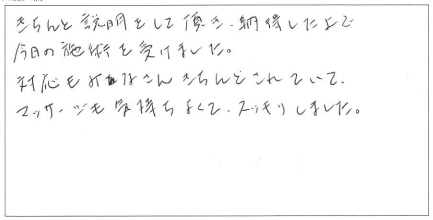 きちんと説明をして頂き、納得した上で
今日の施術を受けました。
対応もみなさんきちんとされていて、
マッサージも気持ちよくて、スッキリしました。